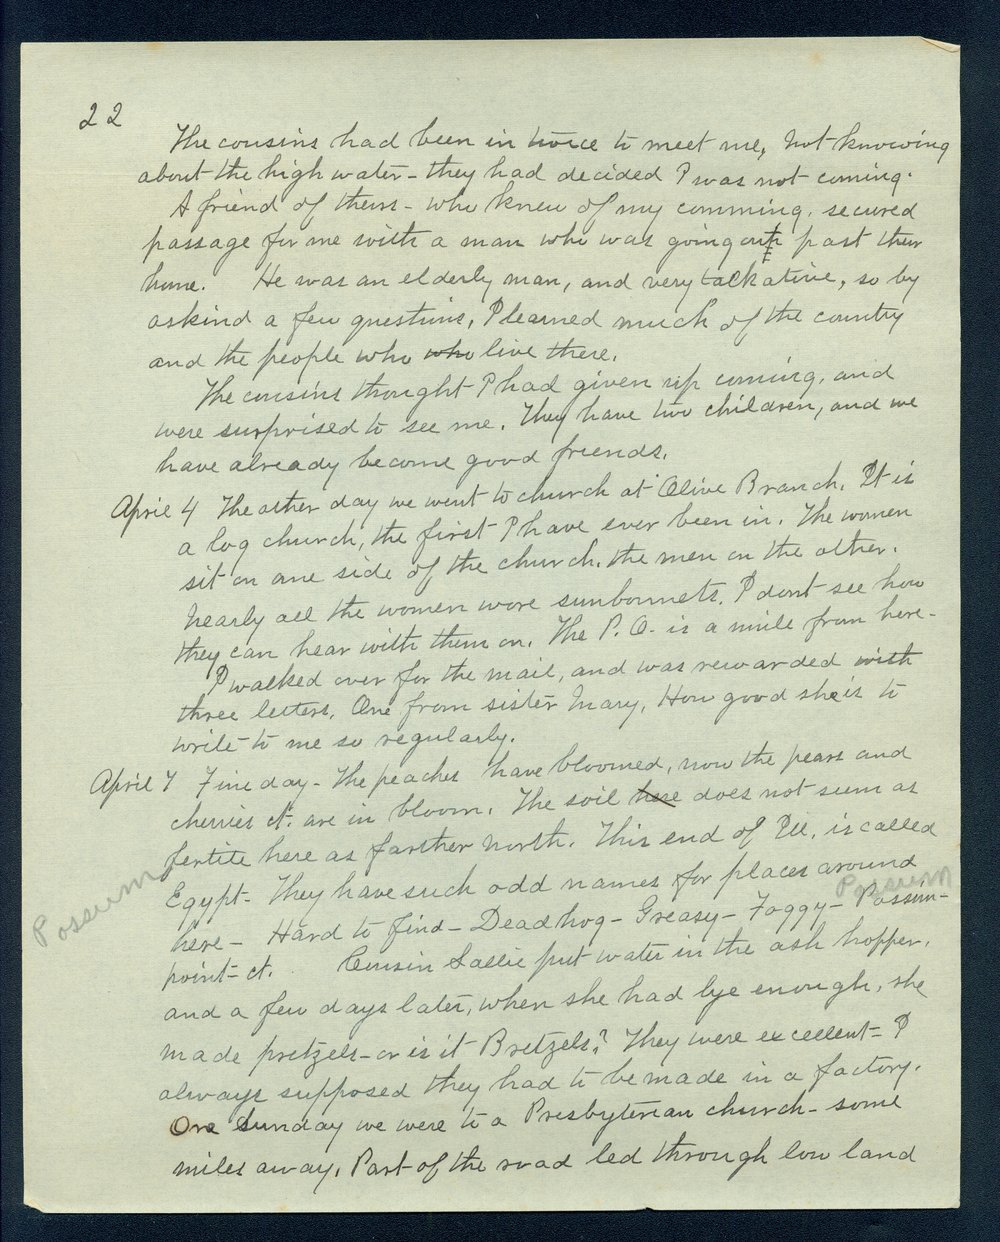 22
The cousins had been in twice to meet me, not knowing
about the high water - they had decided I was not coming.
A friend of theirs - who knew of my comming, secured
passage for me with a man who was going out past their
home. He was an elderly man, and very talkative, so by
askind a few questions, I learned much of the country
and the people who who live there.
The cousins thought I had given up coming, and
were surprised to see me. They have two children, and we
have already become good friends.
April 4 The other day we went to church at Olive Branch. It is
a log church, the first I have ever been in. The women
sit on one side of the church, the men on the other.
Nearly all the women wore sunbonnets. I dont see how
they can hear with them on. The P.O. is a mile from here -
I walked over for the mail, and was rewarded with
three letters, One from sister Mary, How good she is to
write to me so regularly.
April 7 Fine day - The peaches have bloomed, now the pears and
cherries ct. are in bloom. The soil here does not seem as
fertile here as farther north. This end of Ill. is called
Egypt - They have such odd names for places around
Possum
Possum
here - Hard to find - Dead hog - Greasy - Foggy - Possum -
point - ct. Cousin Sallie put water in the ash hopper,
and a few days later, when she had lye enough, she
made pretzels - or is it Bretzels? They were excellent - I
always supposed they had to be made in a factory.
One Sunday we were to a Presbyterian church - some
miles away, Part of the road led through low land